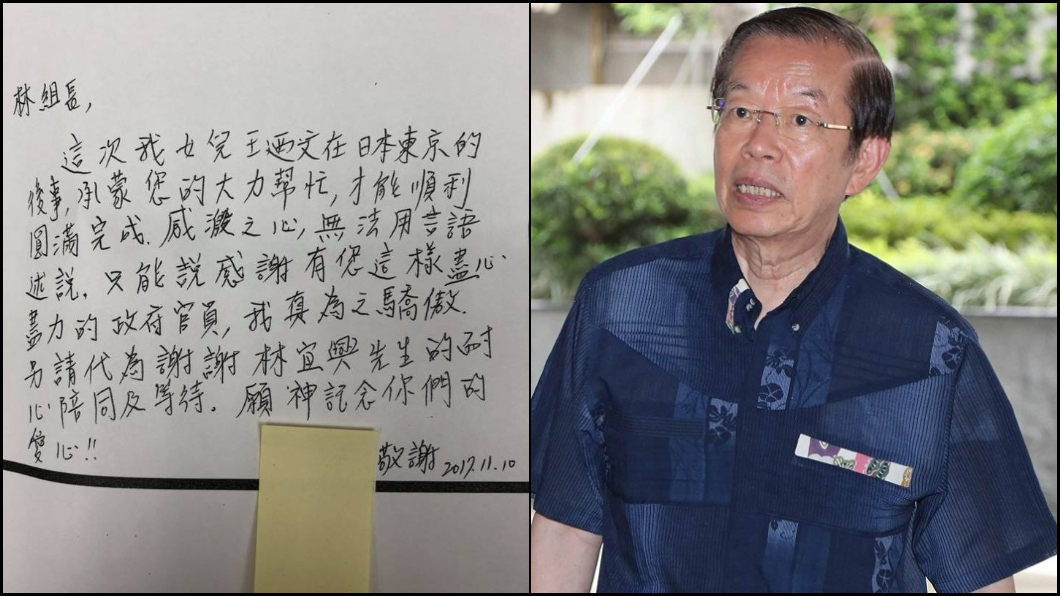 林組長,
這次我女兒王迺文在日本東京的
後事,承蒙您的大力幫忙,才能順利
圓滿完成.感激之心,無法用言語
述說.只能說感謝有您這樣盡心
盡力的政府官員,我真為之驕傲.
另請代為謝謝林宜興先生的耐
心陪同及等待.願神記念你們的
愛心!!
敬謝 2017.11.10